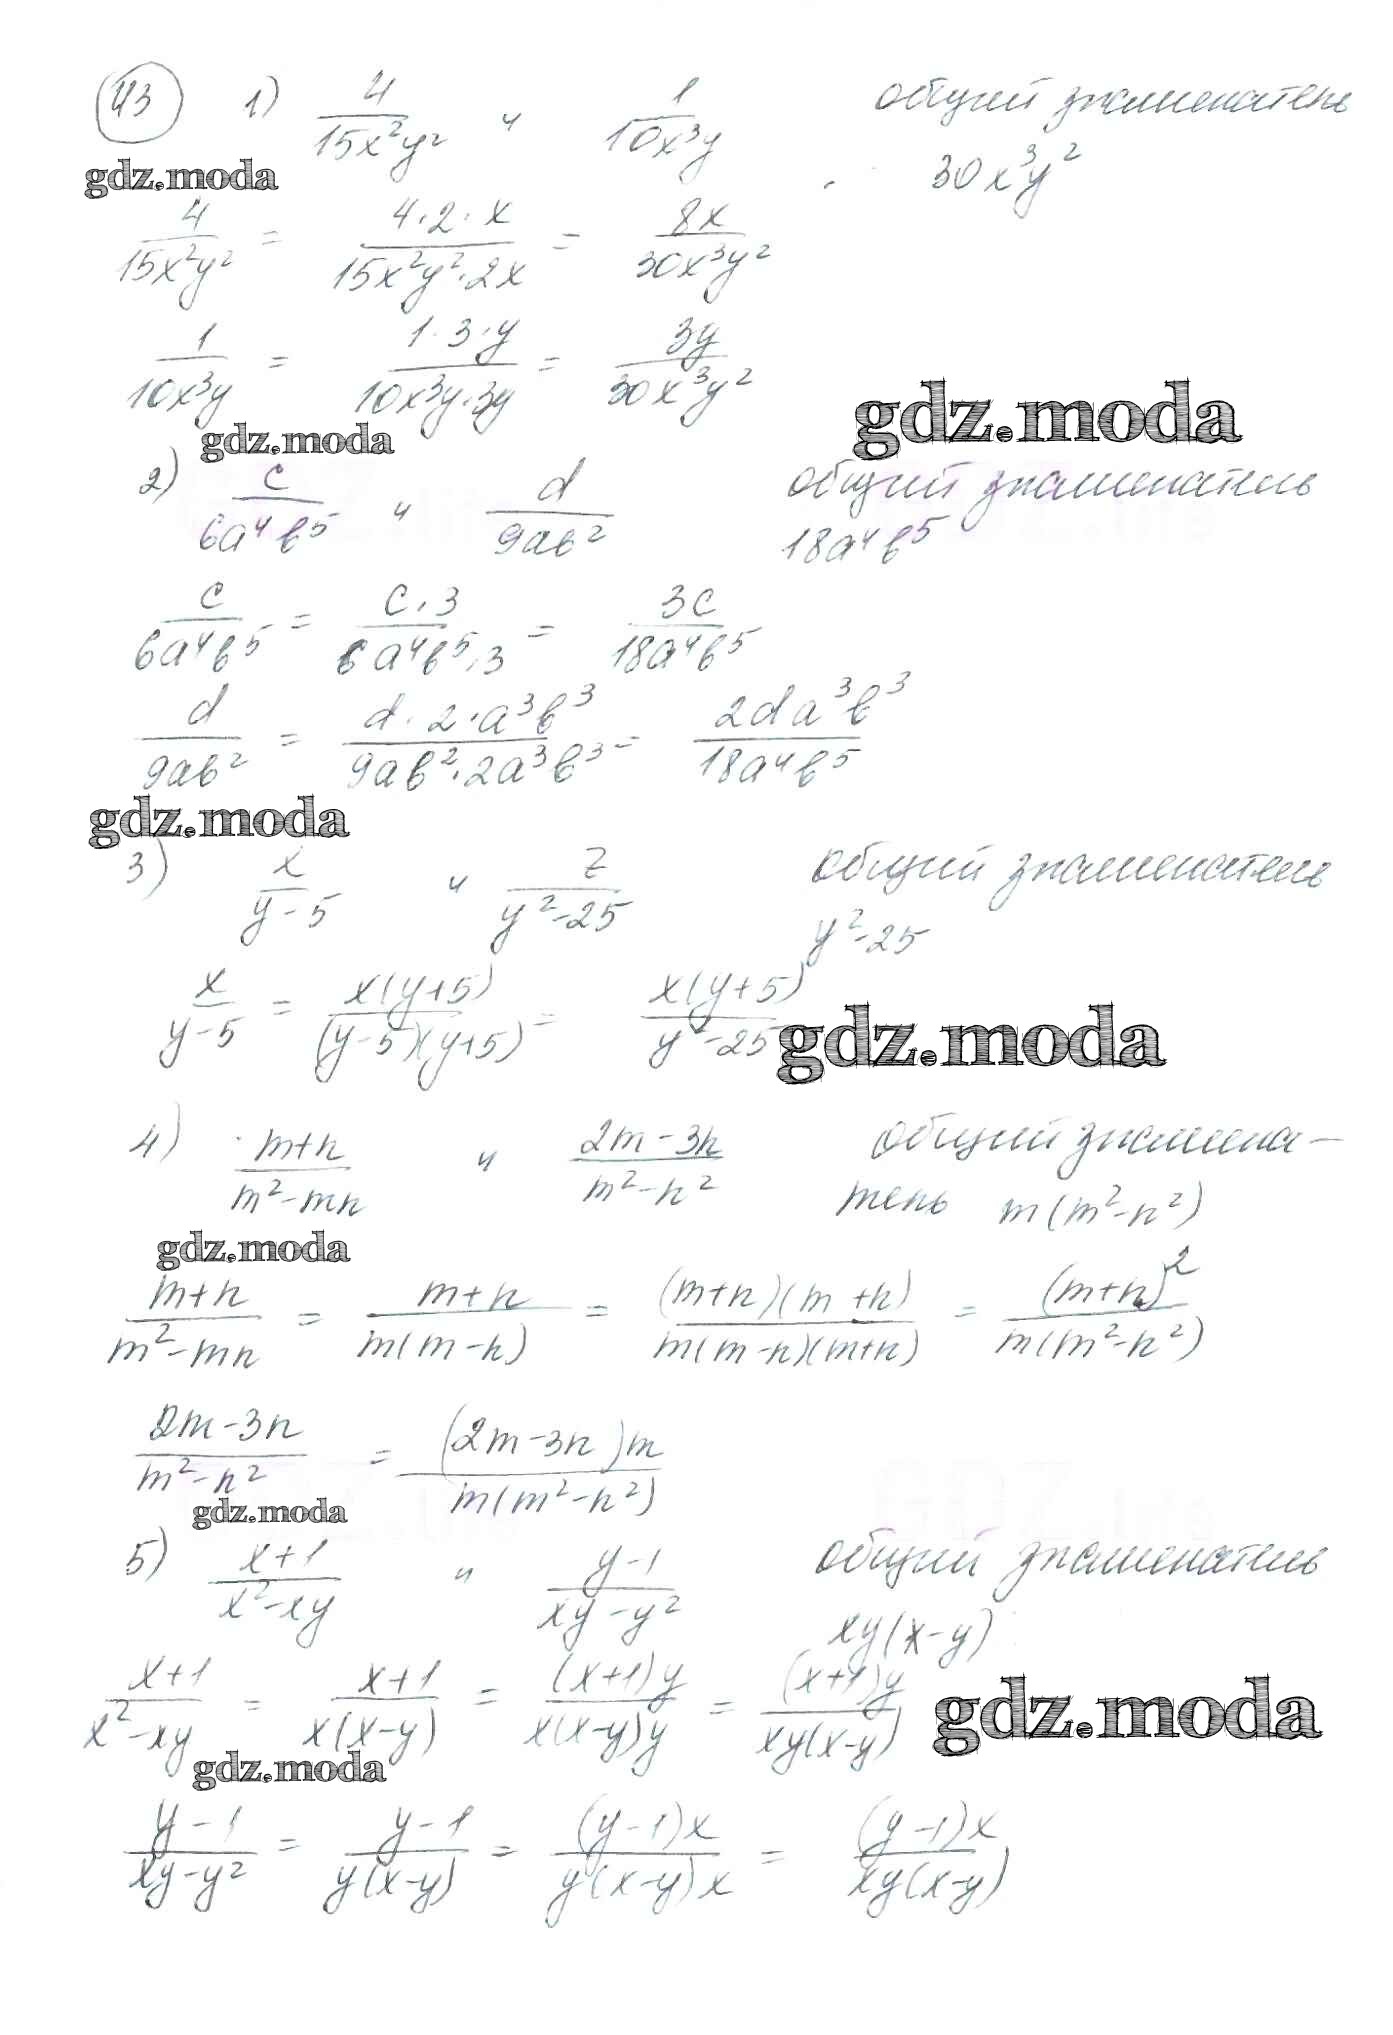 43 1) 4/(15x²y²) и 1/(10x³y) общий знаменатель
gdz.moda 30x³y²
4/(15x²y²) = (4·2·x)/(15x²y²·2x) = 8x/(30x³y²)
1/(10x³y) = (1·3·y)/(10x³y·3y) = 3y/(30x³y²)
gdz.moda
gdz.moda
2) c/(6a⁴b⁵) и d/(9ab²) общий знаменатель
18a⁴b⁵
c/(6a⁴b⁵) = (c·3)/(6a⁴b⁵·3) = 3c/(18a⁴b⁵)
d/(9ab²) = (d·2·a³b³)/(9ab²·2a³b³) = (2da³b³)/(18a⁴b⁵)
gdz.moda
3) x/(y-5) и z/(y²-25) общий знаменатель
y²-25
x/(y-5) = (x(y+5))/((y-5)(y+5)) = (x(y+5))/(y²-25)
gdz.moda
4) (m+n)/(m²-mn) и (2m-3n)/(m²-n²) общий знамена-
тель m(m²-n²)
gdz.moda
(m+n)/(m²-mn) = (m+n)/(m(m-n)) = ((m+n)(m+n))/(m(m-n)(m+n)) = (m+n)²/(m(m²-n²))
(2m-3n)/(m²-n²) = ((2m-3n)m)/(m(m²-n²))
gdz.moda
5) (x+1)/(x²-xy) и (y-1)/(xy-y²) общий знаменатель
xy(x-y)
(x+1)/(x²-xy) = (x+1)/(x(x-y)) = ((x+1)y)/(x(x-y)y) = ((x+1)y)/(xy(x-y))
gdz.moda
gdz.moda
(y-1)/(xy-y²) = (y-1)/(y(x-y)) = ((y-1)x)/(y(x-y)x) = ((y-1)x)/(xy(x-y))